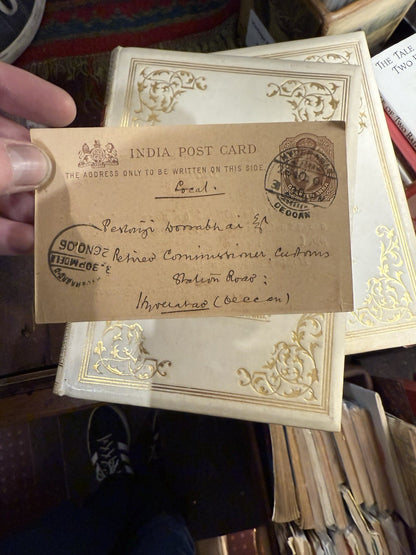 INDIA POST CARD
THE ADDRESS ONLY TO BE WRITTEN ON THIS SIDE.
Local.
Pestonji Dorabhai Esq
Retired Commissioner, Customs
Station Road:
Hyderabad (Deccan)
DECCAN
3.30PM DELY
26 NO. 06
THE TALE
TWO